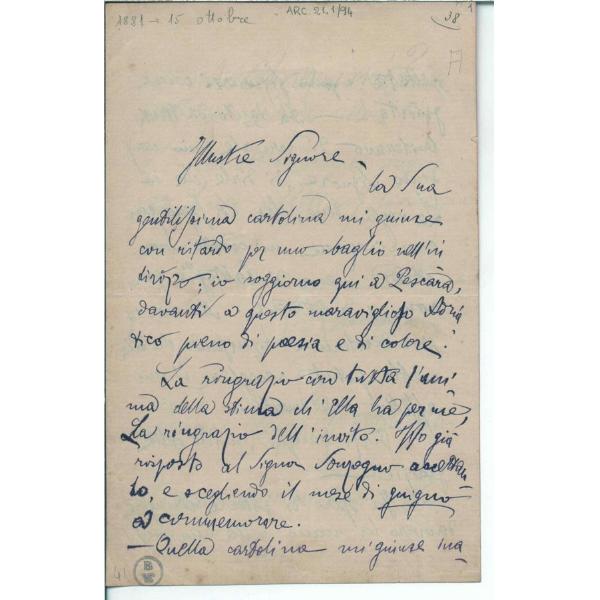 1881 - 15 ottobre
ARC. 21.1/94
38
1
A
Illustre Signore -
la Sua
gentilissima cartolina mi giunse
con ritardo per uno sbaglio nell'in
dirizzo; io soggiorno qui a Pescara,
davanti a questo maraviglioso Adria
tico pieno di poesia e di colore.
La ringrazio con tutta l'ani
ma della stima ch'Ella ha per me,
La ringrazio dell'invito. Ho già
risposto al Signor Sonzogno accettan
do, e scegliendo il mese di giugno
a commemorare.
— Quella cartolina mi giunse ina-
41
B